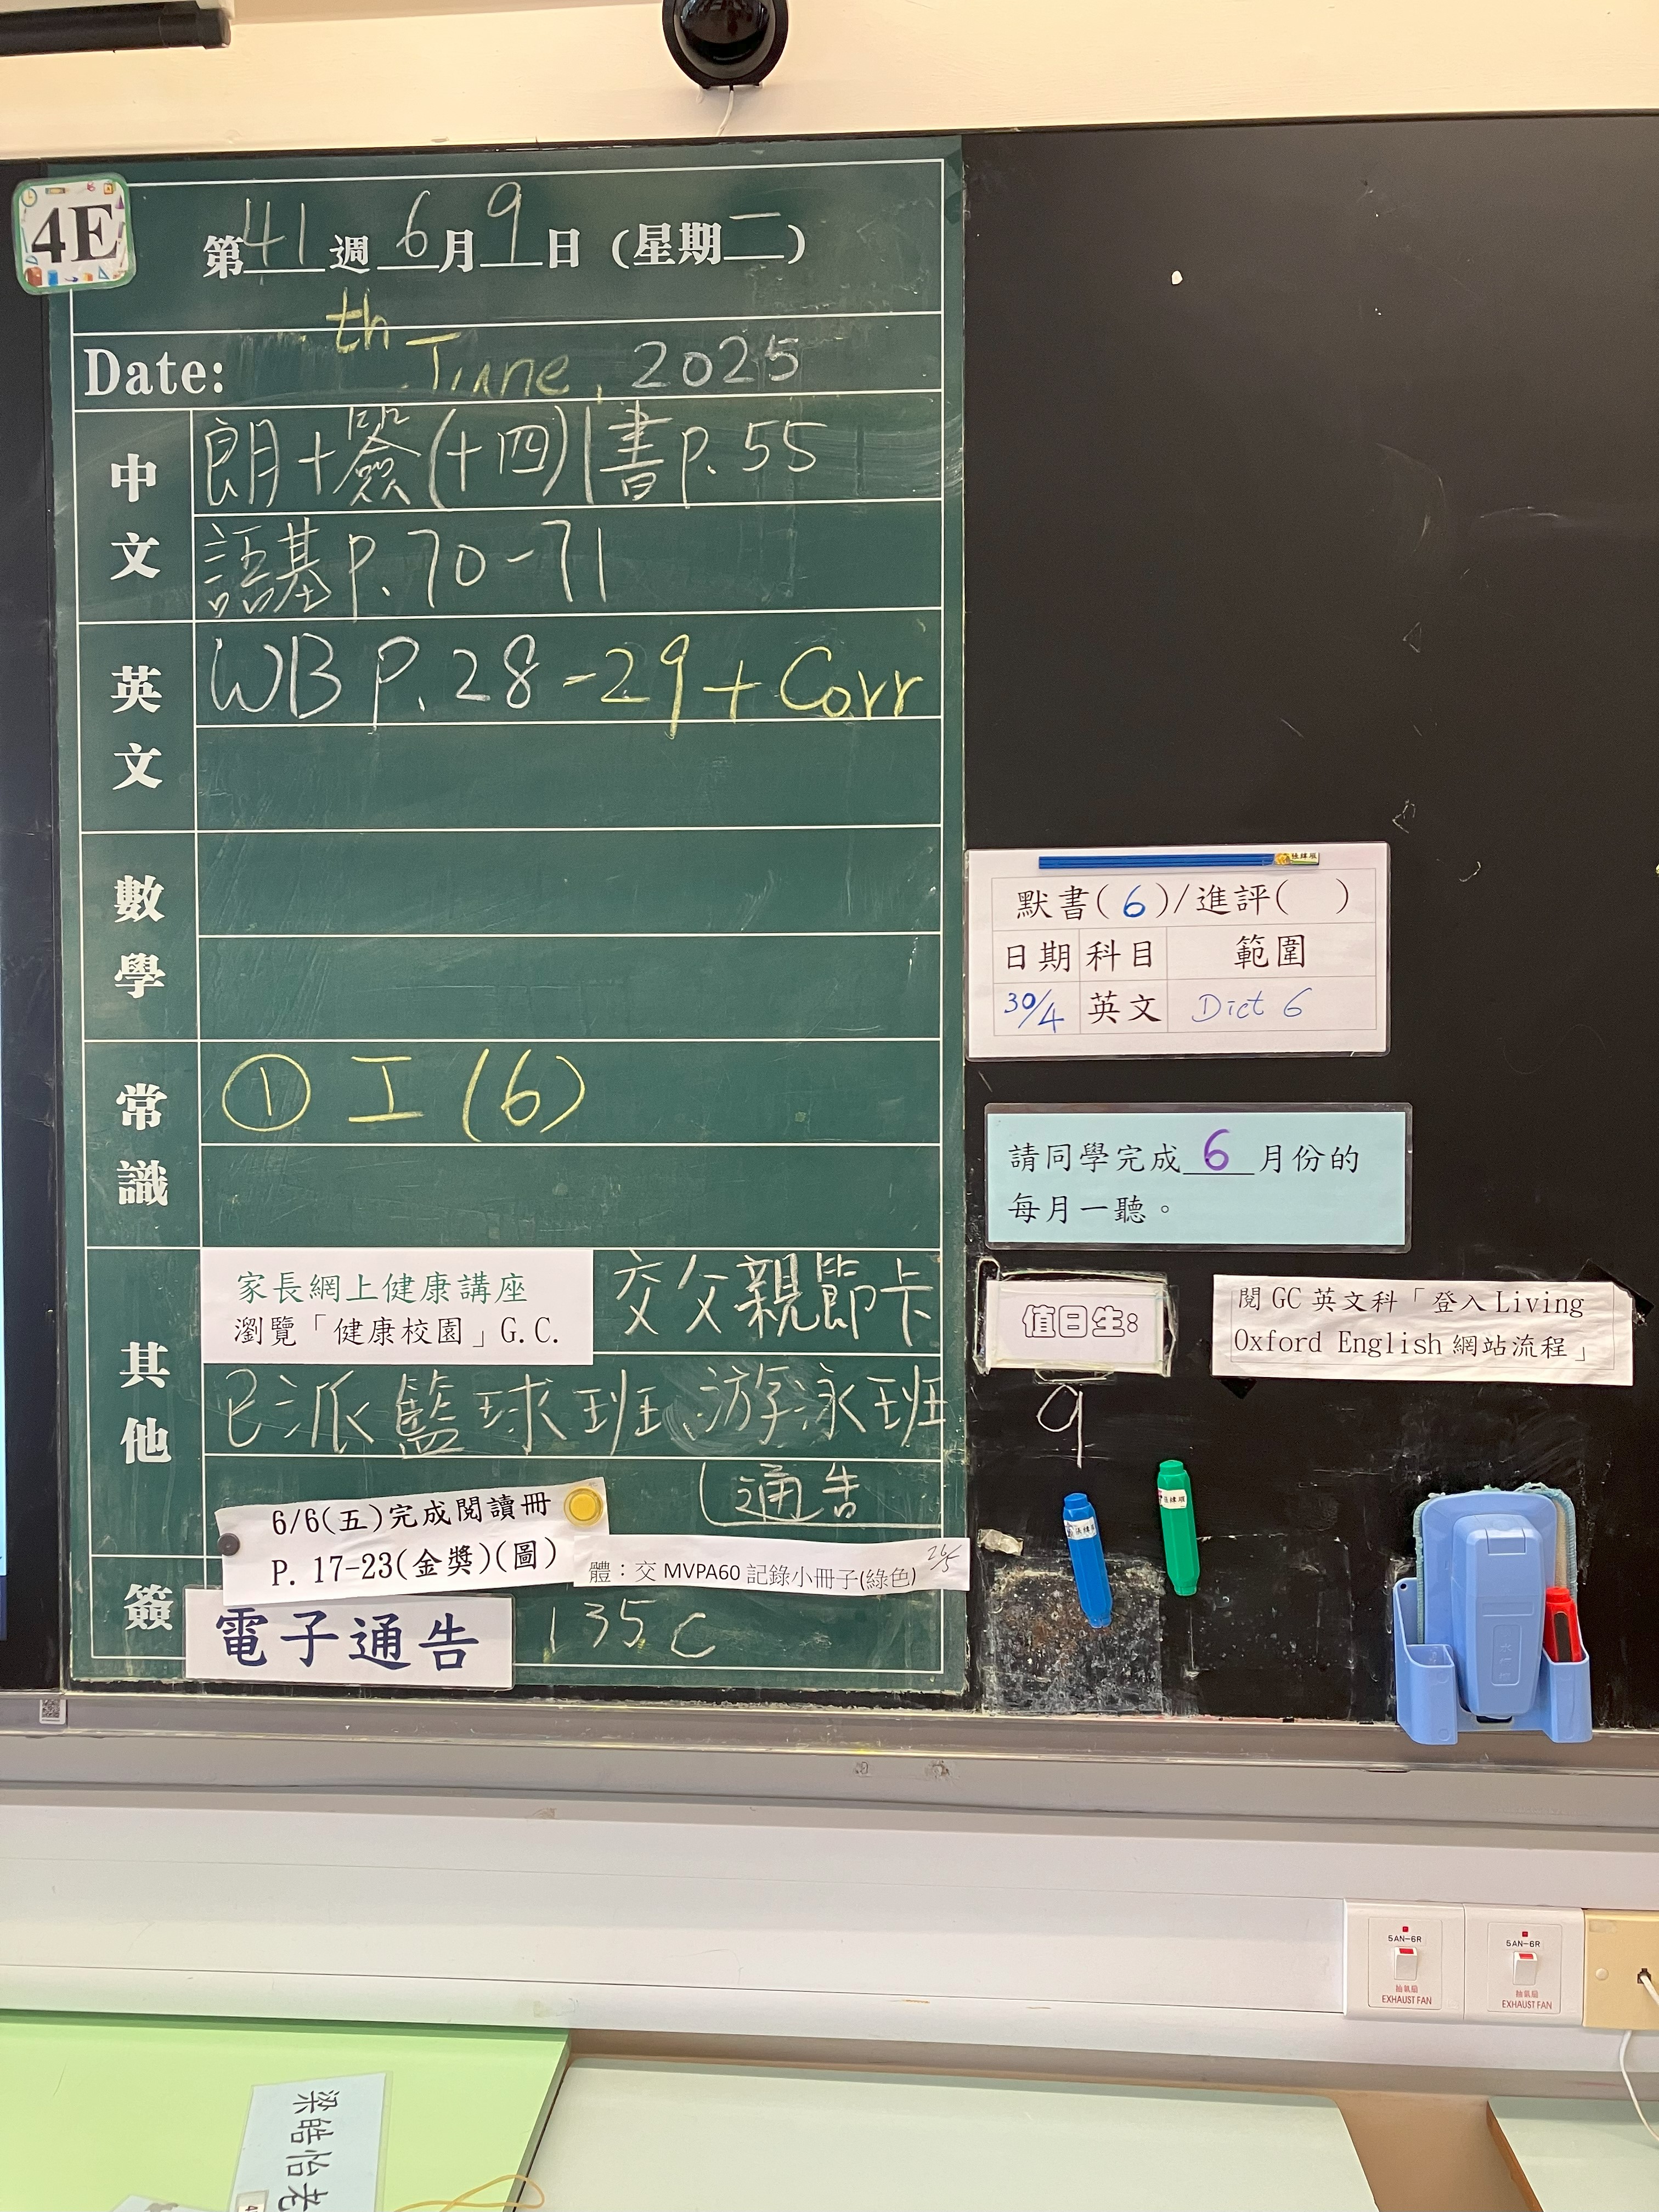 4E
第41週 6月9日 (星期一)
th
Date: June, 2025
中文
朗+簽(十四) | 書p.55
語基p.70-71
英文
WB P.28-29+Corr
數學
常識
① 工(6)
其他
家長網上健康講座
瀏覽「健康校園」G.C.
交父親節卡
已派籃球班、游泳班
通告
6/6(五)完成閱讀冊
P. 17-23(金獎)(圖)
體：交 MVPA60 記錄小冊子(綠色) 26/5
簽
電子通告
135C
默書(6)/進評( )
日期 科目 範圍
30/4 英文 Dict 6
請同學完成6月份的
每月一聽。
值日生:
9
閱 GC 英文科「登入 Living
Oxford English 網站流程」
5AN-6R
抽氣扇
EXHAUST FAN
5AN-6R
抽氣扇
EXHAUST FAN
梁皓怡老